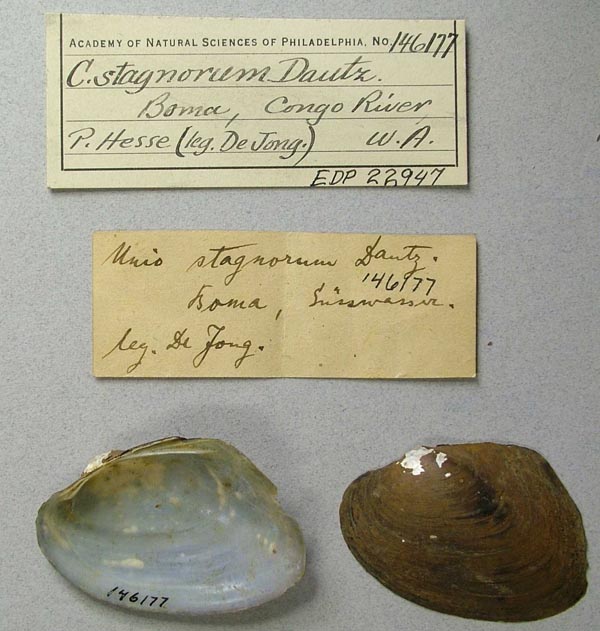 ACADEMY OF NATURAL SCIENCES OF PHILADELPHIA, No. 146177
C. stagnorum Dautz.
Boma, Congo River,
P. Hesse (leg. De Jong.) W. A.
EDP 22947
Unio stagnorum Dautz.
146177
Boma, Süsswasser.
leg. De Jong.
146177